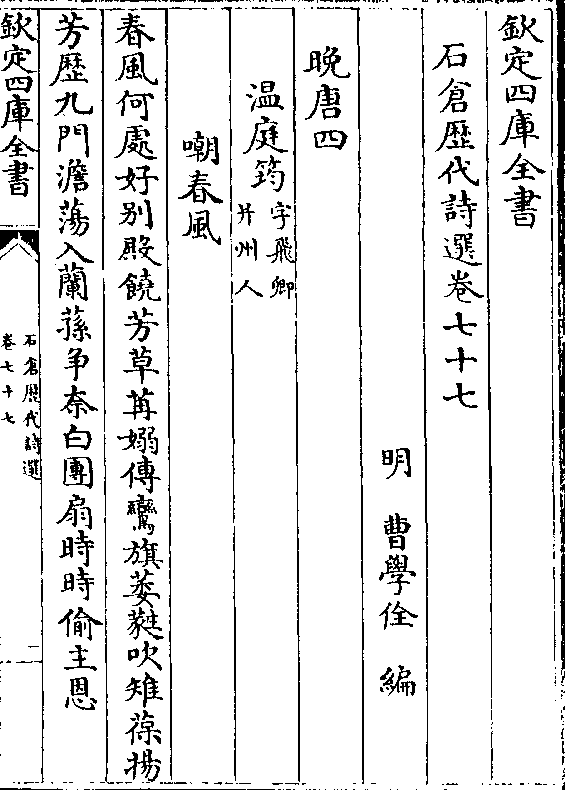 欽定四庫全書
石倉歷代詩選卷七十七
明 曹學佺 編
晚唐四
温庭筠 字飛卿
并州人
嘲春風
春風何處好别殿饒芳草苒嫋傳鸞旗萎蕤吹雉葆揚
芳歷九門澹蕩入蘭蓀争奈白團扇時時偷主恩
欽定四庫全書
石倉歷代詩選
卷七十七
一